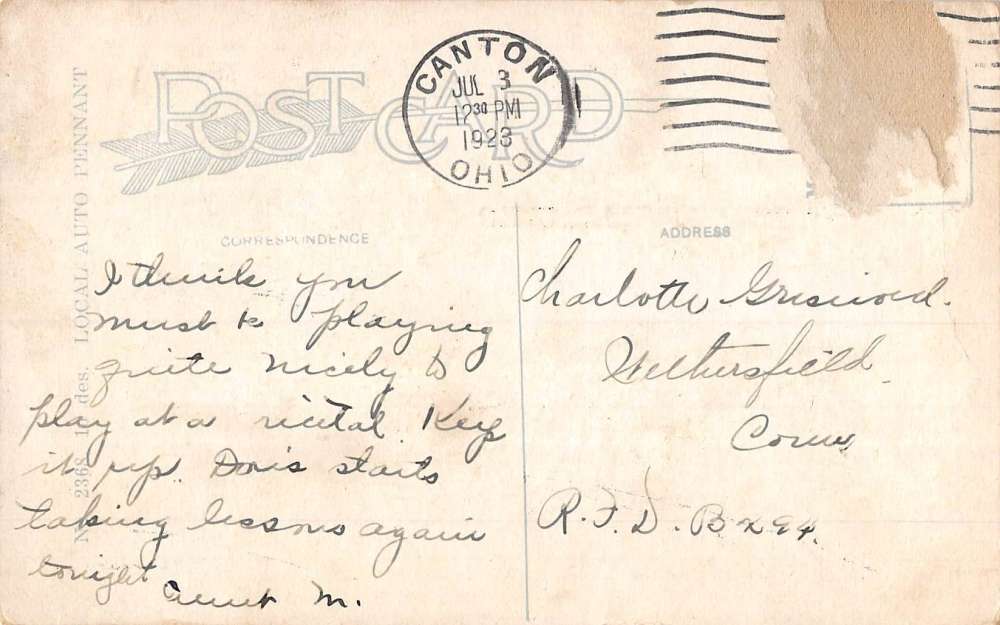 POST CARD
CANTON
JUL 3
12 30 PM
1923
OHIO
CORRESPONDENCE
ADDRESS
LOCAL AUTO PENNANT
des.
I think you
must be playing
quite nicely to
play at a recital. Keep
it up. Doris starts
taking lessons again
tonight
Aunt M.
Charlotte Griswold.
Wethersfield.
Conn,
R.F.D. Bx 94.